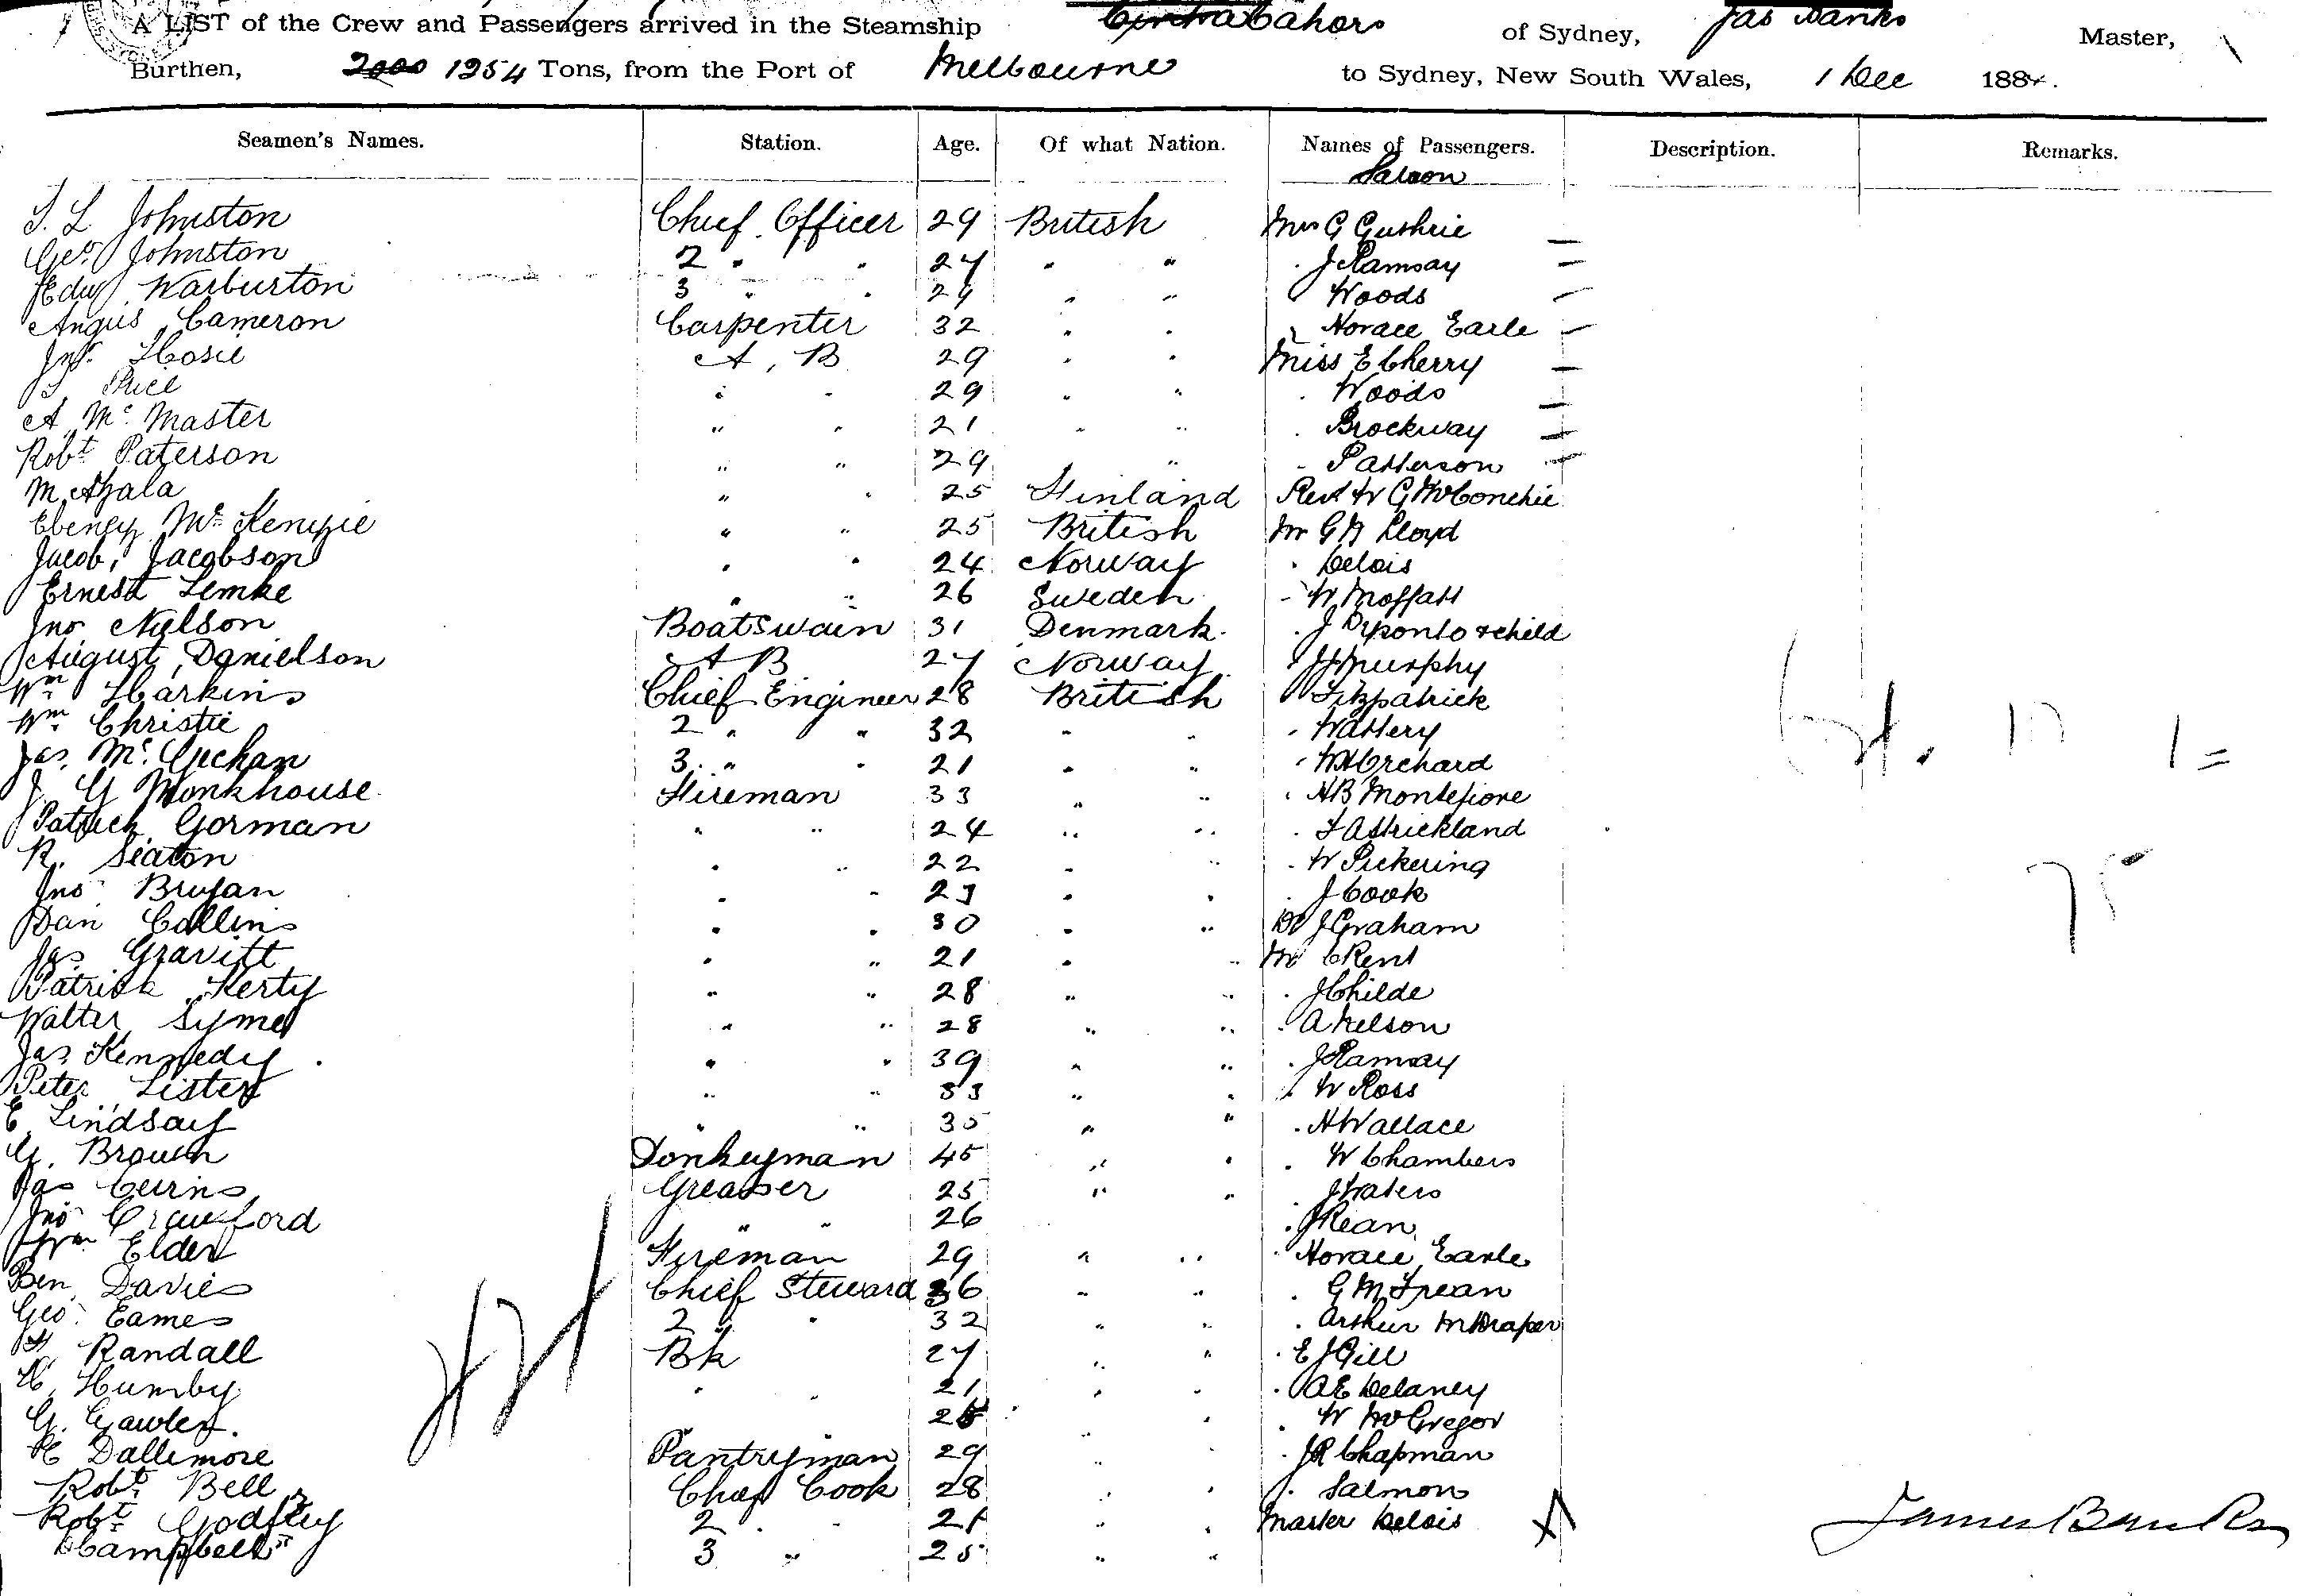 A LIST of the Crew and Passengers arrived in the Steamship Cahors of Sydney, Jas Banks Master,
Burthen, 2000 1254 Tons, from the Port of Melbourne to Sydney, New South Wales, 1 Dec 188
Seamen's Names. Station. Age. Of what Nation. Names of Passengers. Description. Remarks.
Saloon
Johnston Chief Officer 29 British Mrs G Guthrie
Geo Johnston 2 " " 27 " " " J Ramsay
Edw Warburton 3 " " 24 " " " Woods
Angus Cameron Carpenter 32 " " " Horace Earle
Jno. Hosie A, B 29 " " Miss E Cherry
Price " " 29 " " " Woods
A Mc Master " " 21 " " " Brockway
Robt Paterson " " 29 " " " Patterson
M. " " 25 Finland Revd W G McConchie
Mc Kenzie " " 25 British Mr G Lloyd
Jacob, Jacobson " " 24 Norway " Delois
Ernest Lemke " " 26 Sweden " W Moffatt
Jno Nielson Boatswain 31 Denmark. " J & child
August, Danielson A B 27 Norway Murphy
Wm Harkins Chief Engineer 28 British " Fitzpatrick
Wm Christie 2 " " 32 " " " Wattery
Jas. Mc. Gechan 3. " " 21 " " " W H Orchard
J. G Monkhouse Fireman 33 " " " H B Montefiore
Patrick Gorman " " 24 " " " F A Strickland
R. Seaton " " 22 " " " W Pickering
Jno Bryan " " 23 " " " J Cook
Dan Collins " " 30 " " Dr J Graham
Jas Gravitt " " 21 " " Mr C Kent
Patrick Kerty " " 28 " " " J Childe
Walter Syme " " 28 " " " A Nelson
Jas. Kennedy " " 39 " " " J Ramsay
Peter Lister " " 33 " " " W Ross
E Lindsay " " 35 " " " H Wallace
G. Brown Donkeyman 45 " " " W Chambers
Jas Cairns Greaser 25 " " " J Waters
Jno Crawford " " 26 " J Kean
Wm Elder Fireman 29 " " " Horace Earle
Ben Davies Chief Steward 36 " " " G M Frean
Geo. Eames 2 " " 32 " " " Arthur M Draper
Randall Bk 27 " " " E J Gill
H. Humby " " 21 " " " A E Delaney
G. Gawler. " " " " " W McGregor
Dallimore Pantryman 29 " " " J R Chapman
Robt. Bell Chief Cook 28 " " " Salmon
Robt Godfrey 2 " " 21 " " Master Delois
Campbell 3 " 25 " "
James Banks